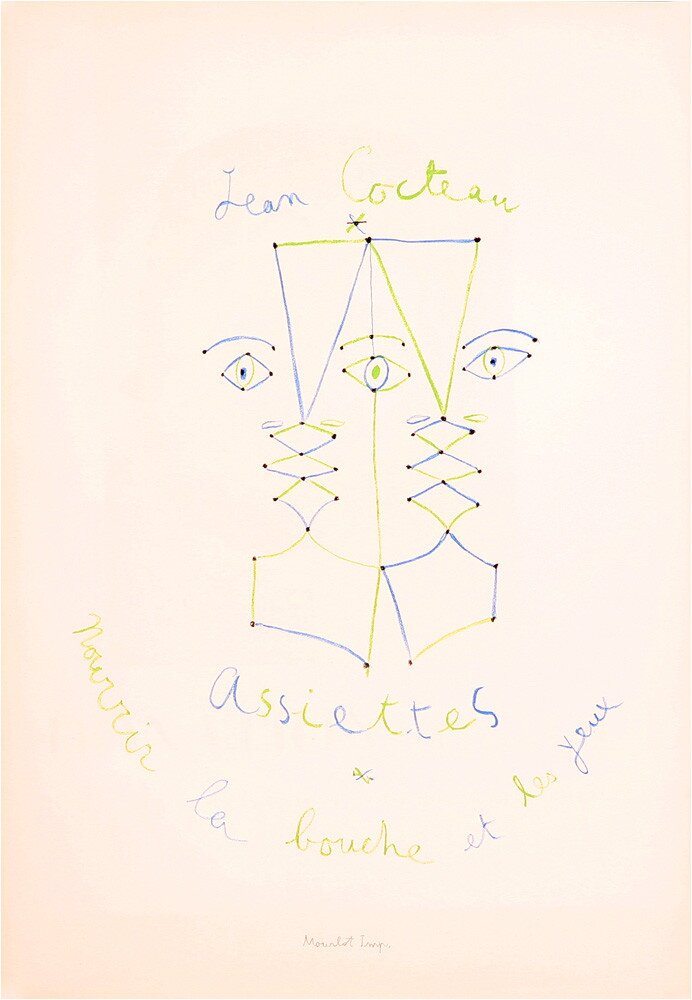 Jean Cocteau
Assiettes
Nourrir la bouche et les yeux
Mourlot Imp.